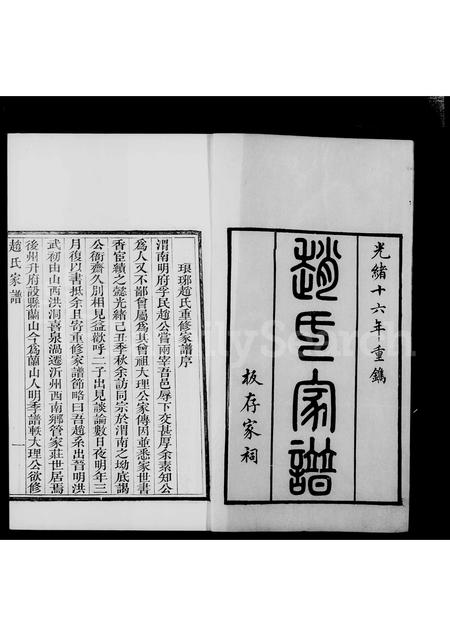 光緒十六年重鐫
趙氏家譜
板存家祠
琅琊趙氏重修家譜序
渭南明府季民趙公嘗兩宰吾邑辱下交甚厚余素知公
為人又不鄙曾屬為其曾祖大理公家傳因並悉家世書
香宦績之懿光緒己丑季秋余訪同宗於渭南之坳底謁
公衙齋久別相見益歡呼二子出見談論數日夜明年三
月復以書抵余且寄重修家譜節略曰吾趙系出晉明洪
武初由山西洪洞喜泉渦遷沂州西南鄉脊家莊世居焉
後州升府設縣蘭山今為蘭山人明季譜軼大理公欲修
趙氏家譜